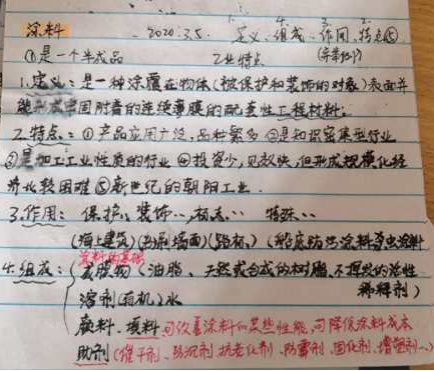 涂料 2020.3.5. 定义、组成、作用、特点⑤
①是一个半成品 工业特点
1.定义:是一种涂覆在物体(被保护和装饰的对象)表面并
能形成牢固附着的连续薄膜的配套性工程材料;
2.特点:①产品应用广泛,品种繁多 ②是知识密集型行业
③是加工工业性质的行业 ④投资少,见效快,但形成规模化经
济比较困难 ⑤新世纪的朝阳工业.
3.作用: 保护、装饰… 标志… 特殊…
(海上建筑) (墙面) (路标) (船底防污涂料杀虫涂料
涂料的基础
4.组成: 成膜物(油脂、天然或合成的树脂、不挥发的活性
稀释剂)
溶剂(有机)水
颜料、填料 可改善涂料的某些性能,可降低涂料成本
助剂(催干剂、防沉剂、抗老化剂、防霉剂、固化剂、增塑剂…)